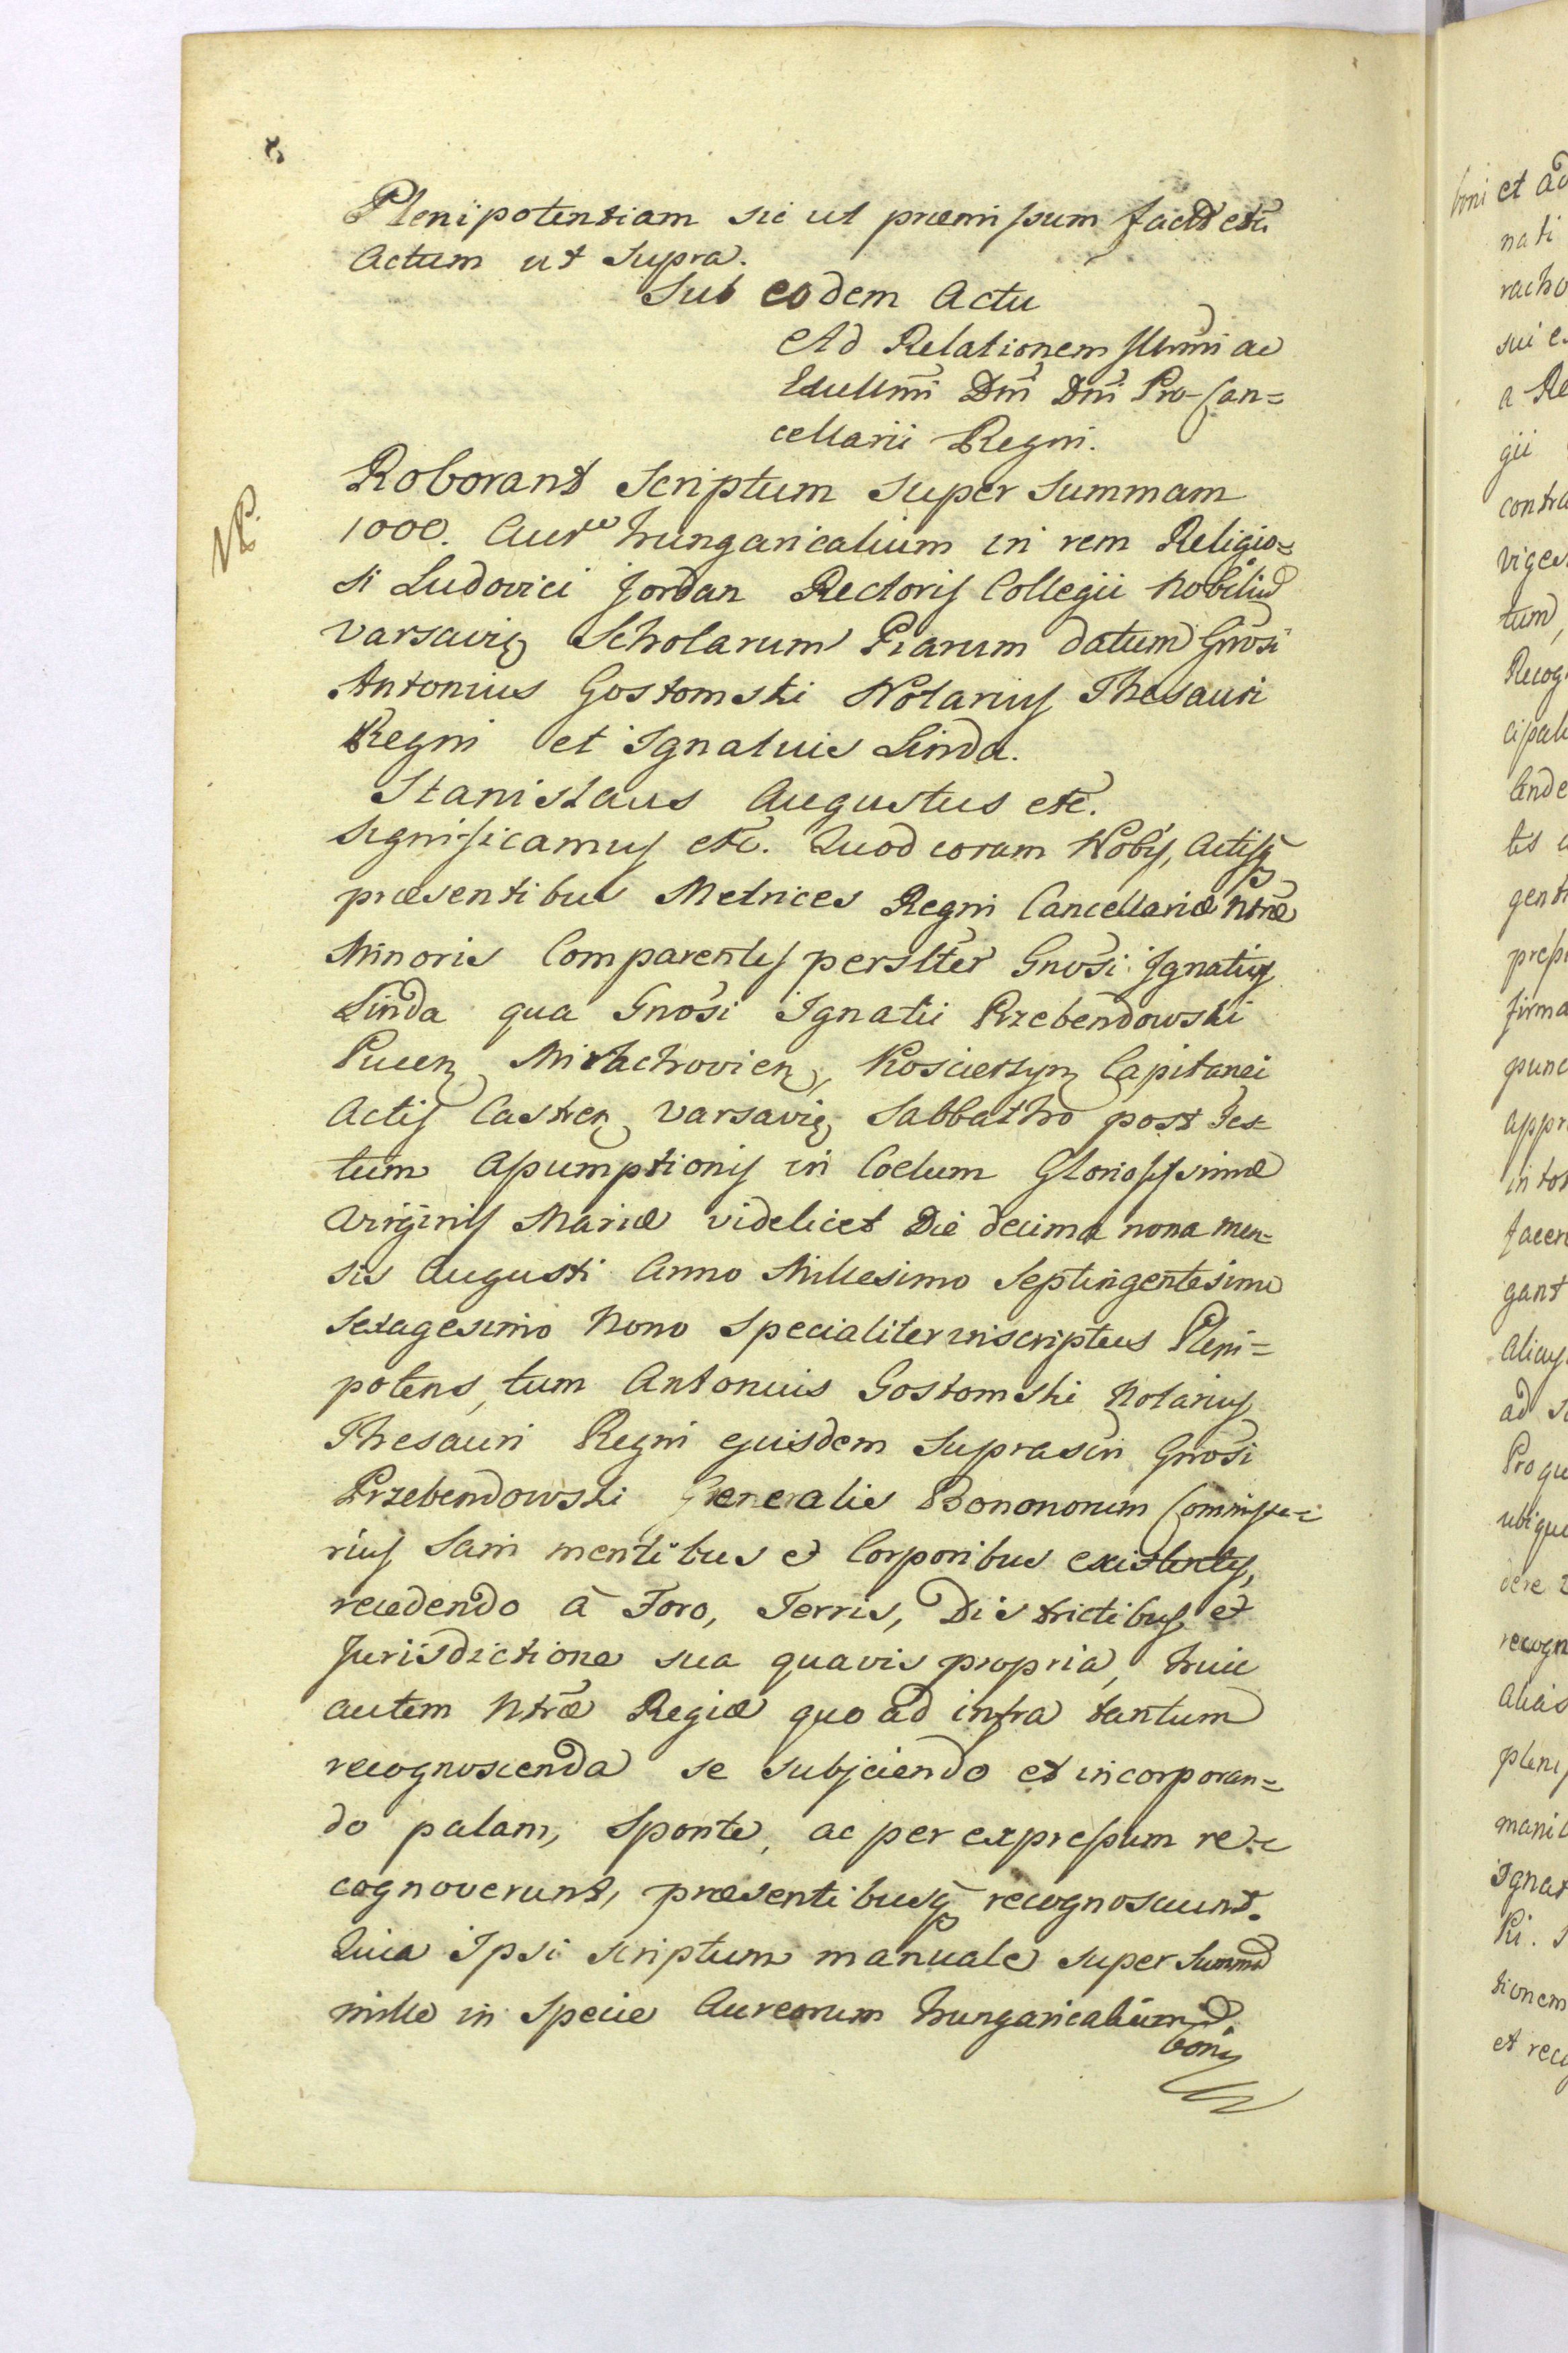 8
Plenipotentiam sic ut præmissum facit etc̃
Actum ut supra.
Sub eodem Actu
Ad Relationem Illmi ac
Excellm̃i Dm̃i Dm̃i Pro-Can=
cellarii Regni.
NB.
Roborant Scriptum super summam
1000. Aur̃e hungaricalium in rem Religio=
si Ludovici Jordan Rectoris Collegii Nobiliũ
Varsavię Scholarum Piarum datum Gnosi
Antonius Gostomski Notarius Thesauri
Regni et Ignatius Linda.
Stanislaus Augustus etc̃.
Significamus etc̃. Quod coram Nobis, Actisq̃
præsentibus Metrices Regni Cancellariæ Ntræ
Minoris Comparentes persl̃ter Gnosi Ignatius
Linda qua Gnosi Ignatii Przebendowski
Pucen̨ Mirachovien̨, Koscierzyn̨ Capitanei
Actis Castren̨ Varsavię Sabbatho post Fes=
tum Assumptionis in Coelum Gloriosissimæ
Virginis Mariæ videlicet Die decima nona men=
sis Augusti Anno Millesimo Septingentesimo
Sexagesimo Nono specialiter inscriptus Pleni=
potens, tum Antonius Gostomski Notarius
Thesauri Regni ejusdem suprascri Gnosi
Przebendowski Generalis Bononorum Commissa=
rius sani mentibus et Corporibus existentes,
recedendo à Foro, Terris, Districtibus, et
Jurisdictione sua quavis propria, huic
autem Ntræ Regiæ quo ad infra tantum
recognoscenda se subjciendo et incorporan=
do palam, sponte, ac per expressum re=
cognoverunt, præsentibusq̃ recognoscunt.
Quia Ipsi scriptum manuale super Summã
mille in specie Aureorum hungaricalium
boni
boni et
nati
sui
a Re
gii
contra
tum,
Recog
gent
firma
punc
appr
gant
Pro qu
ubique
recogn
alias
pleni
Ignat
tionem
et reco